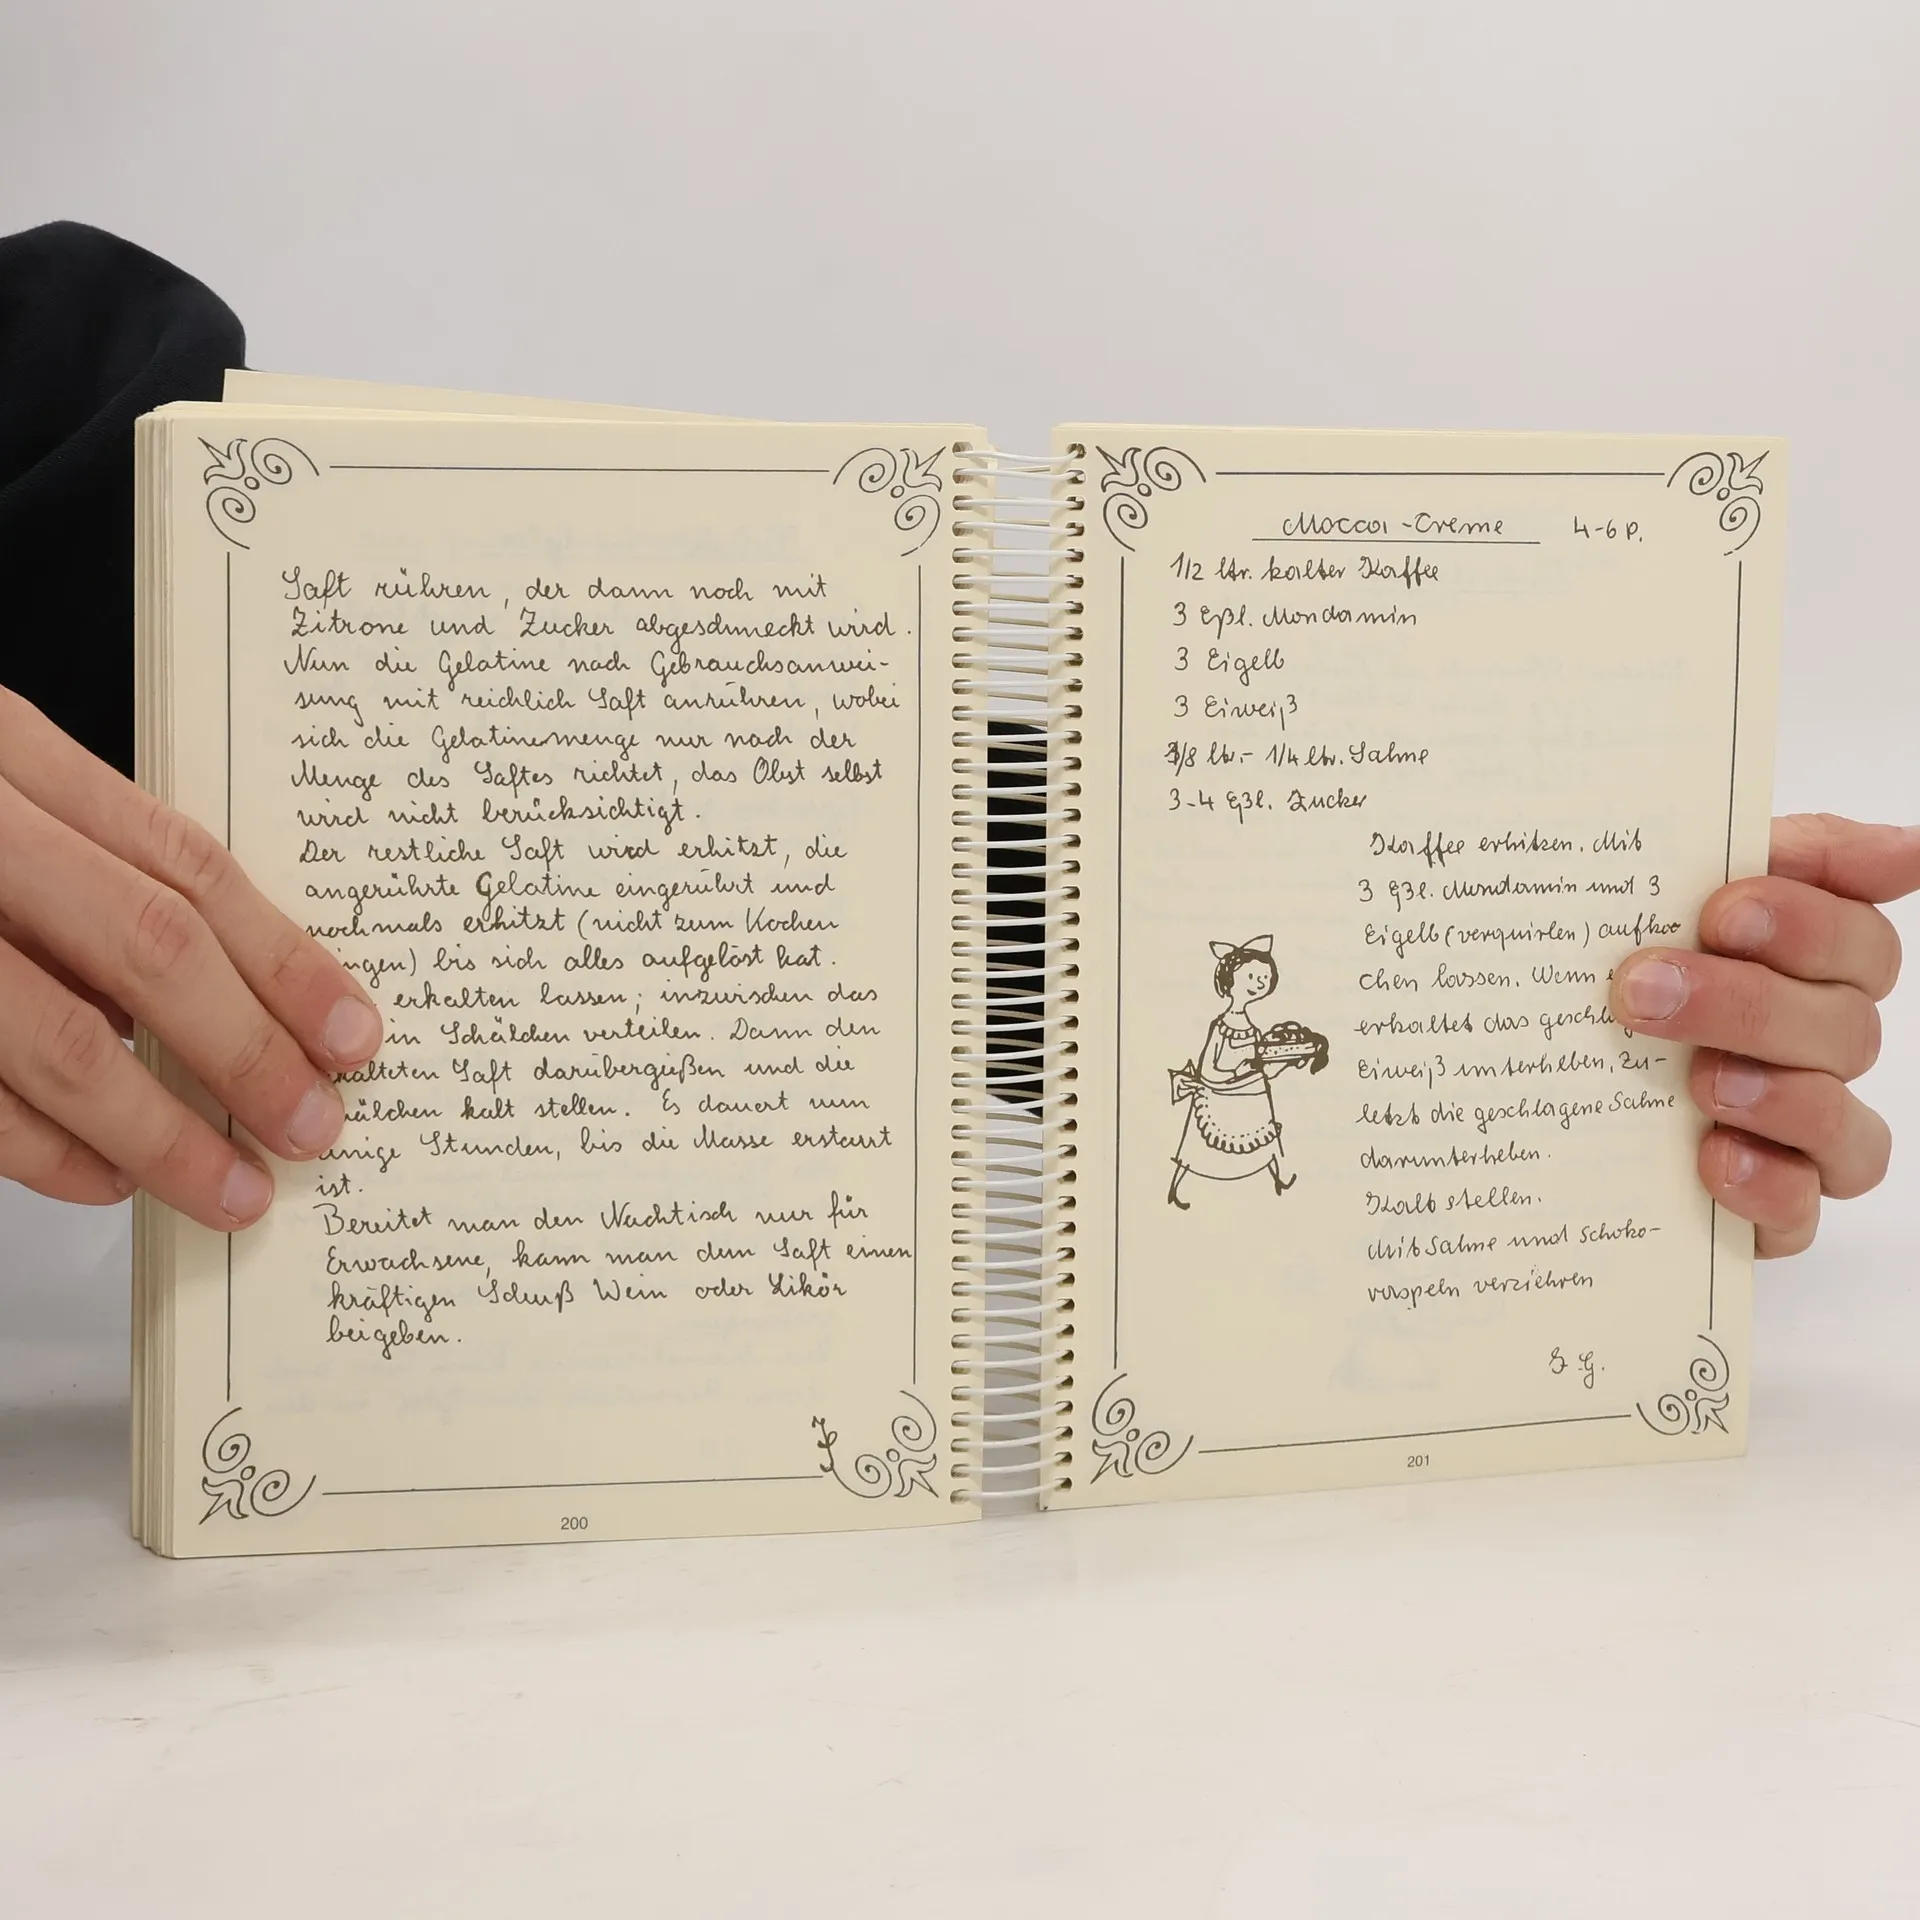 Saft rühren, der dann noch mit
Zitrone und Zucker abgeschmeckt wird.
Nun die Gelatine nach Gebrauchsanwei-
sung mit reichlich Saft anrühren, wobei
sich die Gelatinemenge nur nach der
Menge des Saftes richtet, das Obst selbst
wird nicht berücksichtigt.
Der restliche Saft wird erhitzt, die
angerührte Gelatine eingerührt und
nochmals erhitzt (nicht zum Kochen
ingen) bis sich alles aufgelöst hat.
erkalten lassen; inzwischen das
in Schälchen verteilen. Dann den
kalteten Saft darübergießen und die
älchen kalt stellen. Es dauert nun
einige Stunden, bis die Masse erstarrt
ist.
Bereitet man den Nachtisch nur für
Erwachsene, kann man dem Saft einen
kräftigen Schuß Wein oder Likör
beigeben.
200
Mocca-Creme 4-6 P.
1/2 ltr. kalter Kaffee
3 Eßl. Mondamin
3 Eigelb
3 Eiweiß
/8 ltr.- 1/4 ltr. Sahne
3-4 Eßl. Zucker
Kaffee erhitzen. Mit
3 Eßl. Mondamin und 3
Eigelb (verquirlen) aufko
chen lassen. Wenn
erkaltet das geschl
Eiweiß unterheben, Zu-
letzt die geschlagene Sahne
darunterheben.
Kalt stellen.
Mit Sahne und Schoko-
raspeln verziehren
G.
201